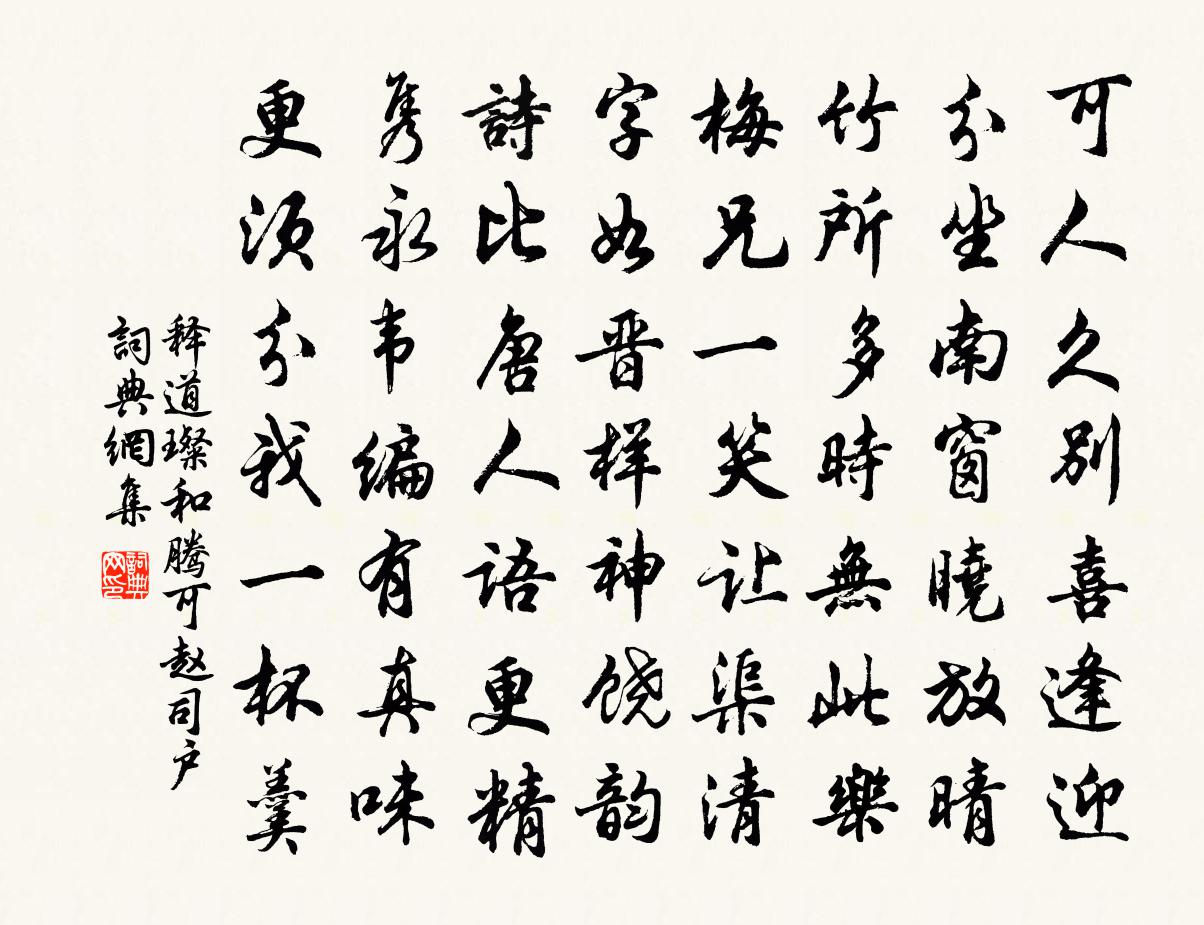 可人久别喜逢迎
分坐南窗曉放晴
竹所多時無此樂
梅兄一笑让渠清
字如晋样神饶韵
詩比唐人语更精
隽永韦编有真味
更须分我一杯羹
释道璨和腾可赵司户
詞典網集
詞典网印